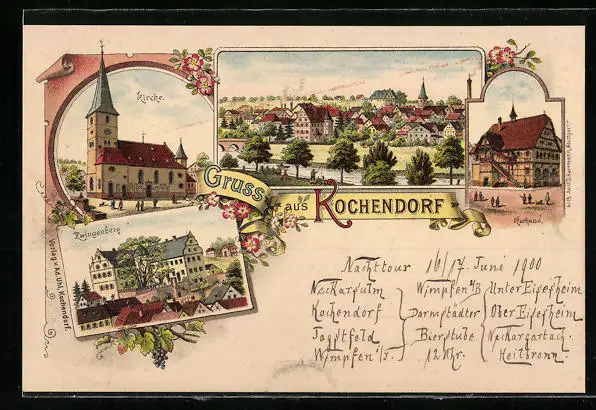 Kirche.
Zwingenberg
Rathaus.
Gruss
aus KOCHENDORF
Verlag v. Ad. Uhl, Kochendorf.
Nachttour 16/17 Juni 1900
Neckarsulm
Kochendorf
Jagstfeld
Wimpfen i/T.
Wimpfen a/B
Darmstädter
Bierstube
12 Uhr.
Unter Eisesheim
Ober Eisesheim
Neckargartach
Heilbronn.